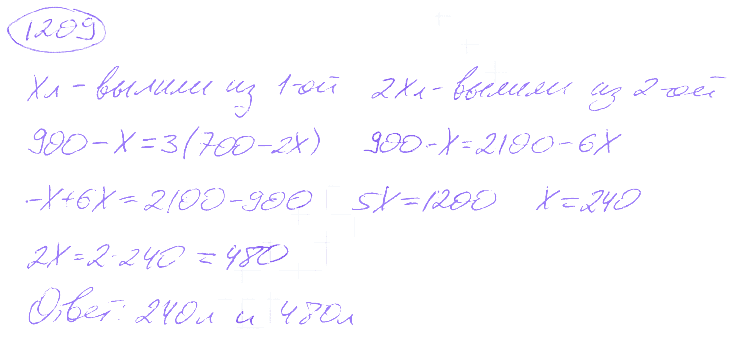 1209
Xл - вылили из 1-ой 2Xл - вылили из 2-ой
900 - X = 3(700 - 2X) 900 - X = 2100 - 6X
-X + 6X = 2100 - 900 5X = 1200 X = 240
2X = 2 · 240 = 480
Ответ: 240л и 480л